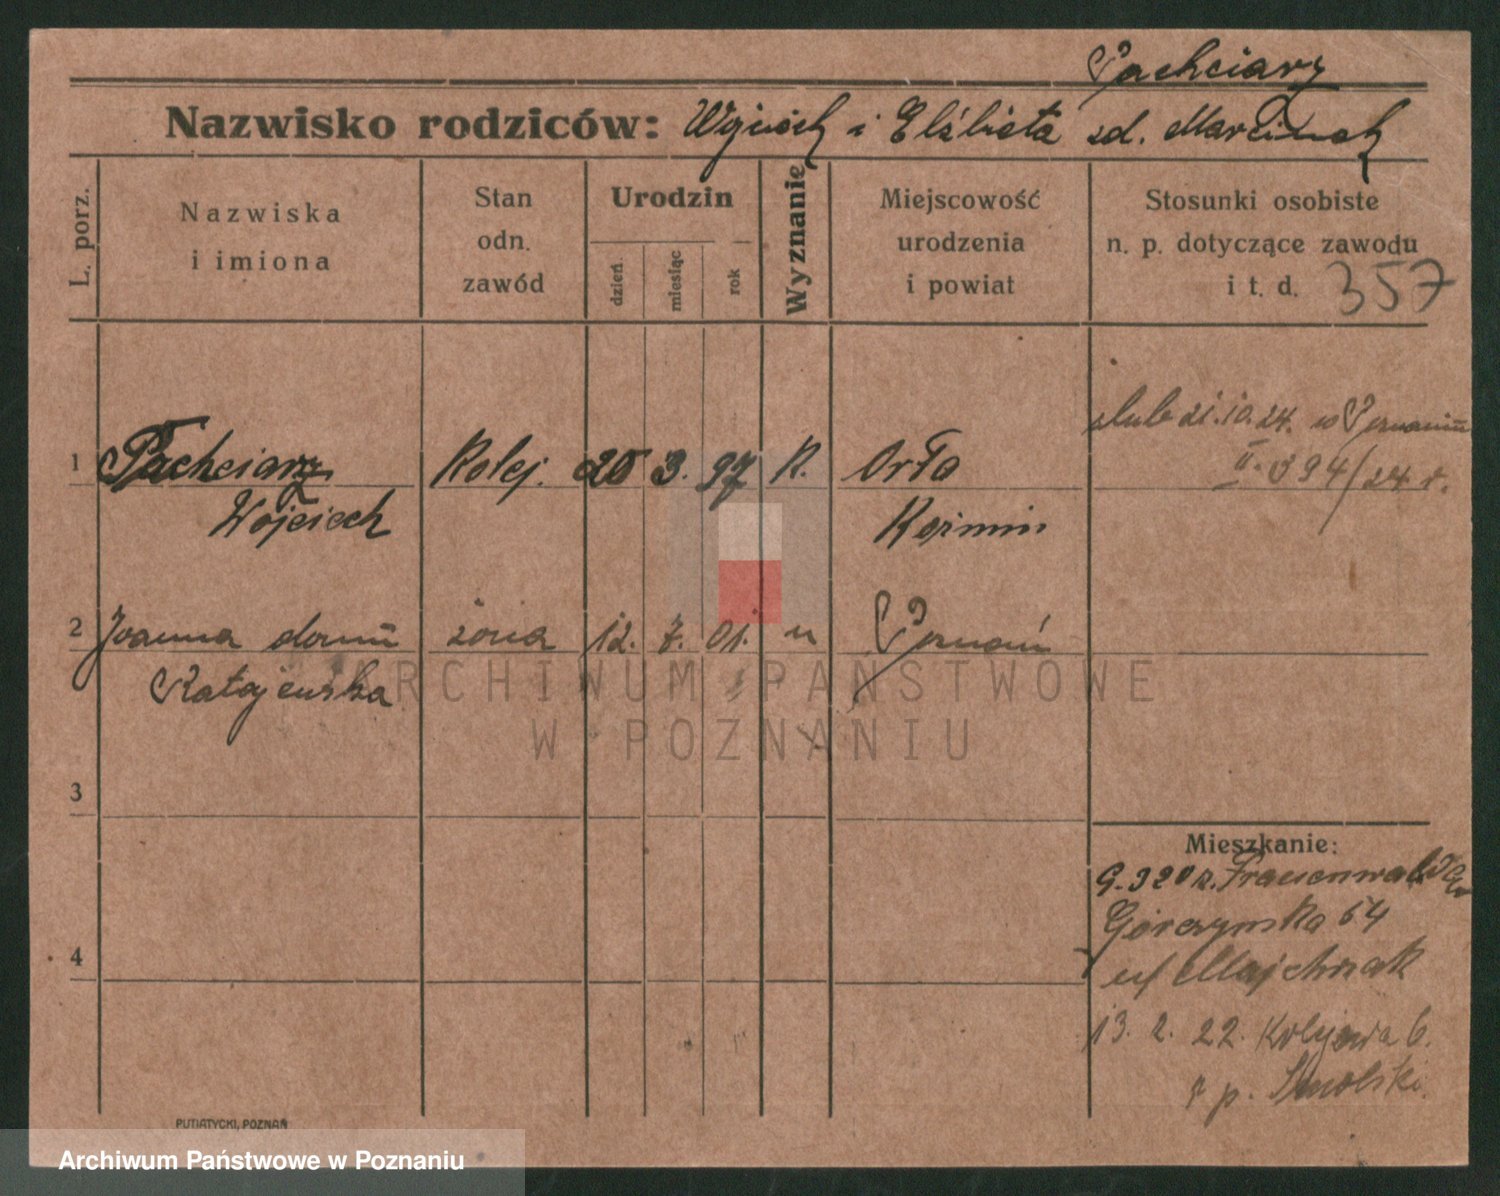 Pachciarz
Nazwisko rodziców: Wojciech i Elżbieta zd. Marciniak
L. porz.
Nazwiska
i imiona
Stan
odn.
zawód
Urodzin
dzień
miesiąc
rok
Wyznanie
Miejscowość
urodzenia
i powiat
Stosunki osobiste
n. p. dotyczące zawodu
i t. d. 357
ślub 21.10.24. w Poznaniu
II. 394/24 r.
1 Pachciarz Kolej. 20 3. 97 K. Orła
Wojciech Koźmin
2 Joanna dom żona 12. 7. 01. " Poznań
Ratajewska
3
4
Mieszkanie:
G. 320 z. Frauenwald
Górczyńska 54
u/ Majchrzak
13. 2. 22. Kolejowa 6.
p. Smolski.
PUTIATYCKI, POZNAŃ
ARCHIWUM PAŃSTWOWE
W POZNANIU
Archiwum Państwowe w Poznaniu